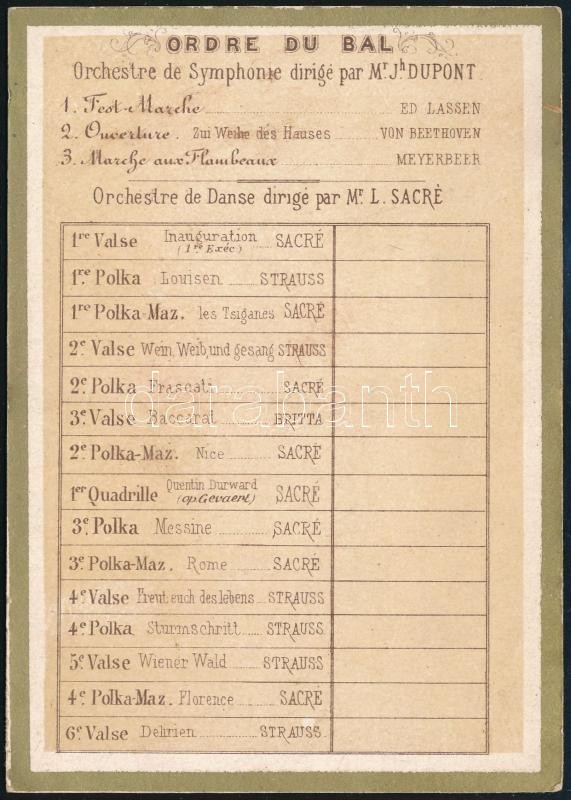 ORDRE DU BAL
Orchestre de Symphonie dirigé par Mr. Jh DUPONT
1. Fest-Marche ED LASSEN
2. Ouverture. Zui Weihe des Hauses VON BEETHOVEN
3. Marche aux Flambeaux MEYERBEER
Orchestre de Danse dirigé par Mr. L. SACRÈ
1re Valse Inauguration (1re Exéc) SACRÉ
1re Polka Louisen STRAUSS
1re Polka-Maz. les Tsiganes SACRÉ
2e Valse Wein, Weib, und gesang STRAUSS
2e Polka Frascati SACRÉ
3e Valse Baccarat BRITTA
2e Polka-Maz. Nice SACRÉ
1er Quadrille Quentin Durward (op. Gevaert) SACRÉ
3e Polka Messine SACRÉ
3e Polka-Maz. Rome SACRÉ
4e Valse Freut euch des lebens STRAUSS
4e Polka Sturmschritt STRAUSS
5e Valse Wiener Wald STRAUSS
4e Polka-Maz. Florence SACRÉ
6e Valse Delirien STRAUSS
darabanth